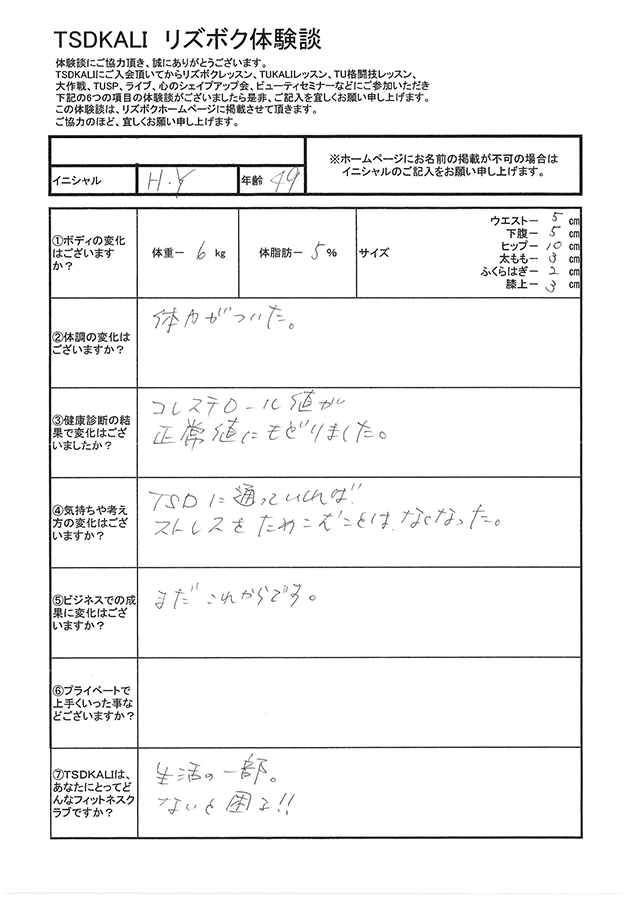 TSDKALI リズボク体験談
体験談にご協力頂き、誠にありがとうございます。
TSDKALIにご入会頂いてからリズボクレッスン、TUKALIレッスン、TU格闘技レッスン、
大作戦、TUSP、ライブ、心のシェイプアップ会、ビューティセミナーなどにご参加いただき
下記の6つの項目の体験談がございましたら是非、ご記入を宜しくお願い申し上げます。
この体験談は、リズボクホームページに掲載させて頂きます。
ご協力のほど、宜しくお願い申し上げます。
イニシャル H.Y 年齢 49
※ホームページにお名前の掲載が不可の場合は
イニシャルのご記入をお願い申し上げます。
①ボディの変化
はございます
か？
体重ー 6 kg
体脂肪ー 5 %
サイズ
ウエストー 5 cm
下腹ー 5 cm
ヒップー 10 cm
太ももー 3 cm
ふくらはぎー 2 cm
膝上ー 3 cm
②体調の変化は
ございますか？
体力がついた。
③健康診断の結
果で変化はござ
いましたか？
コレステロール値が
正常値にもどりました。
④気持ちや考え
方の変化はござ
いますか？
TSDに通っていれば
ストレスをためこむことは、なくなった。
⑤ビジネスでの成
果に変化はござ
いますか？
まだこれからです。
⑥プライベートで
上手くいった事な
どございますか？
⑦TSDKALIは、
あなたにとってど
んなフィットネスク
ラブですか？
生活の一部。
ないと困る!!